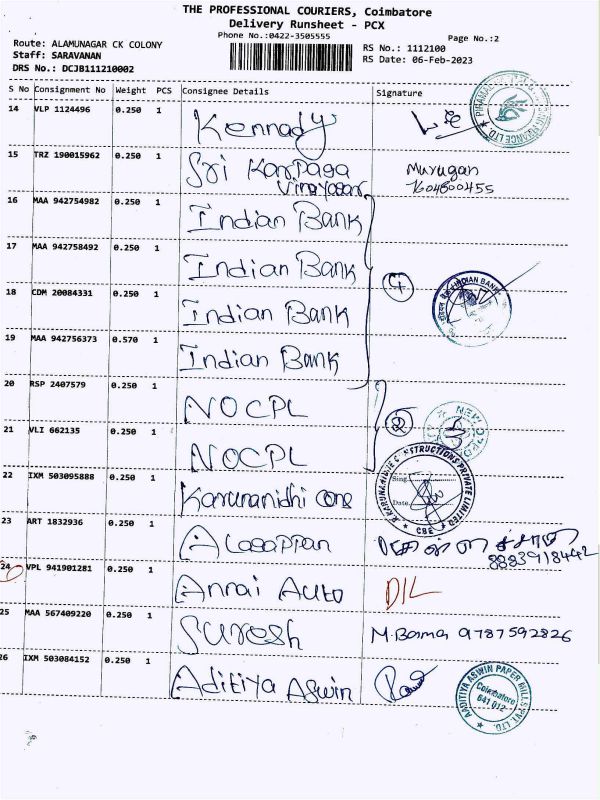 THE PROFESSIONAL COURIERS, Coimbatore
Delivery Runsheet - PCX
Phone No.:0422-3505555
Page No.:2
Route: ALAMUNAGAR CK COLONY
RS No.: 1112100
Staff: SARAVANAN
RS Date: 06-Feb-2023
DRS No.: DCJB111210002
S No Consignment No Weight PCS Consignee Details Signature
14 VLP 1124496 0.250 1 Kennady
15 TRZ 190015962 0.250 1 Sri Karpaga Vinayagar Murugan 7604800455
16 MAA 942754982 0.250 1 Indian Bank
17 MAA 942758492 0.250 1 Indian Bank
4
INDIAN BANK
18 CDM 20084331 0.250 1 Indian Bank
19 MAA 942756373 0.570 1 Indian Bank
20 RSP 2407579 0.250 1 NOCPL
2
21 VLI 662135 0.250 1 NOCPL
22 IXM 503095888 0.250 1 Karunanidhi cons
Sing
Date
CBE
23 ART 1832936 0.250 1 Alagappan
8883918442
24 VPL 941901281 0.250 1 Annai Auto D/L
25 MAA 567409220 0.250 1 Suresh M. Barma 9787592826
26 IXM 503084152 0.250 1 Aditiya Aswin
AADITIYA ASWIN PAPER MILLS PVT. LTD.
Coimbatore
641 012